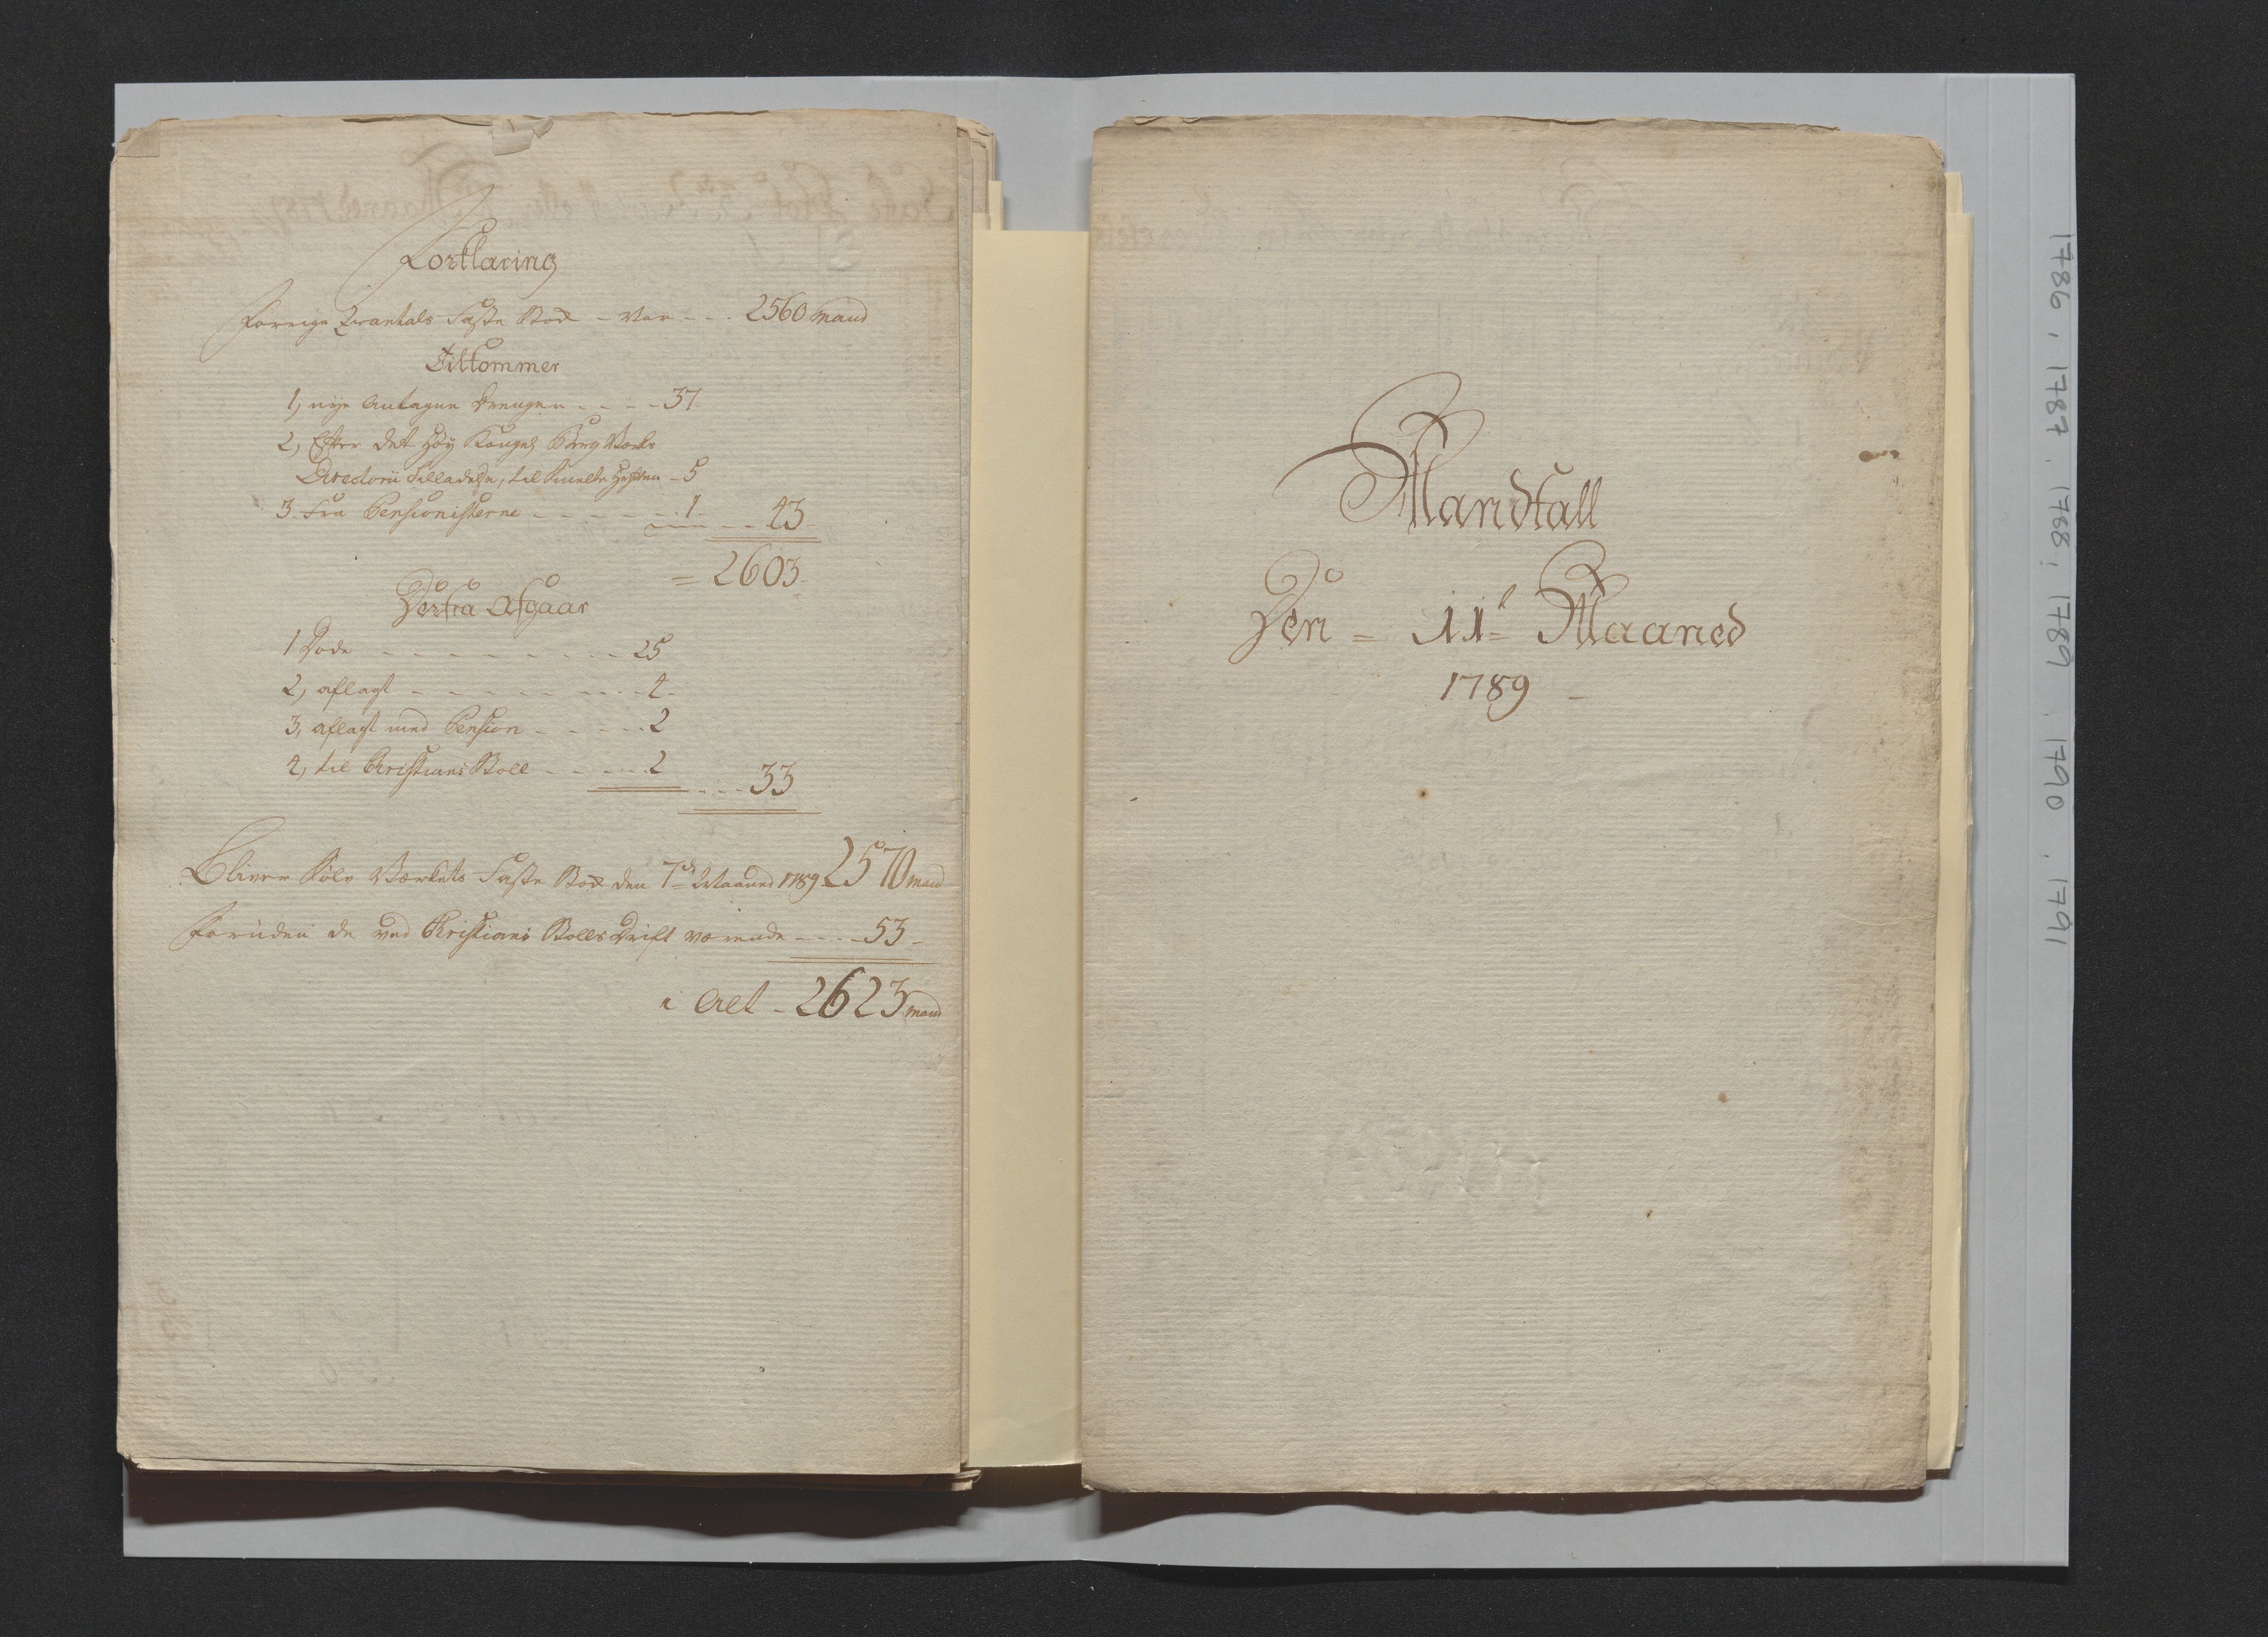 Forklaring
Forrige Qvartals Faste Stok - var - - - 2560 mand
Tilkommer
1, nye Antagne Drenge - - - - 37
2, Efter det Høy Kongel Berg Værks
Directorii Tilladelse, til Smelte Hytten - 5
3. Fra Pensionisterne - - - - - - 1
- - 43
= 2603
Herfra Afgaar
1 Døde - - - - - - - - - 25
2, aflagt - - - - - - - - 4
3, aflagt med Pension - - - - - 2
4, til Christians Stoll - - - - - 2
- - - 33
Bliver Sølv Værkets Faste Stok den 7de Maaned 1789 2570 mand
Foruden de ved Christians Stolls Drift værende - - - - 53
i Alt - 2623 mand
Mandtall
Den = 11te Maaned
1789
1786, 1787. 1788, 1789. 1790. 1791